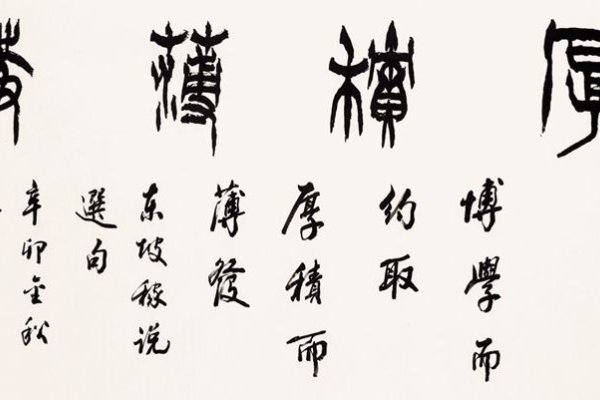 厚積薄
博學而
约取
厚積而
薄發
东坡稼说
選句
辛卯金秋